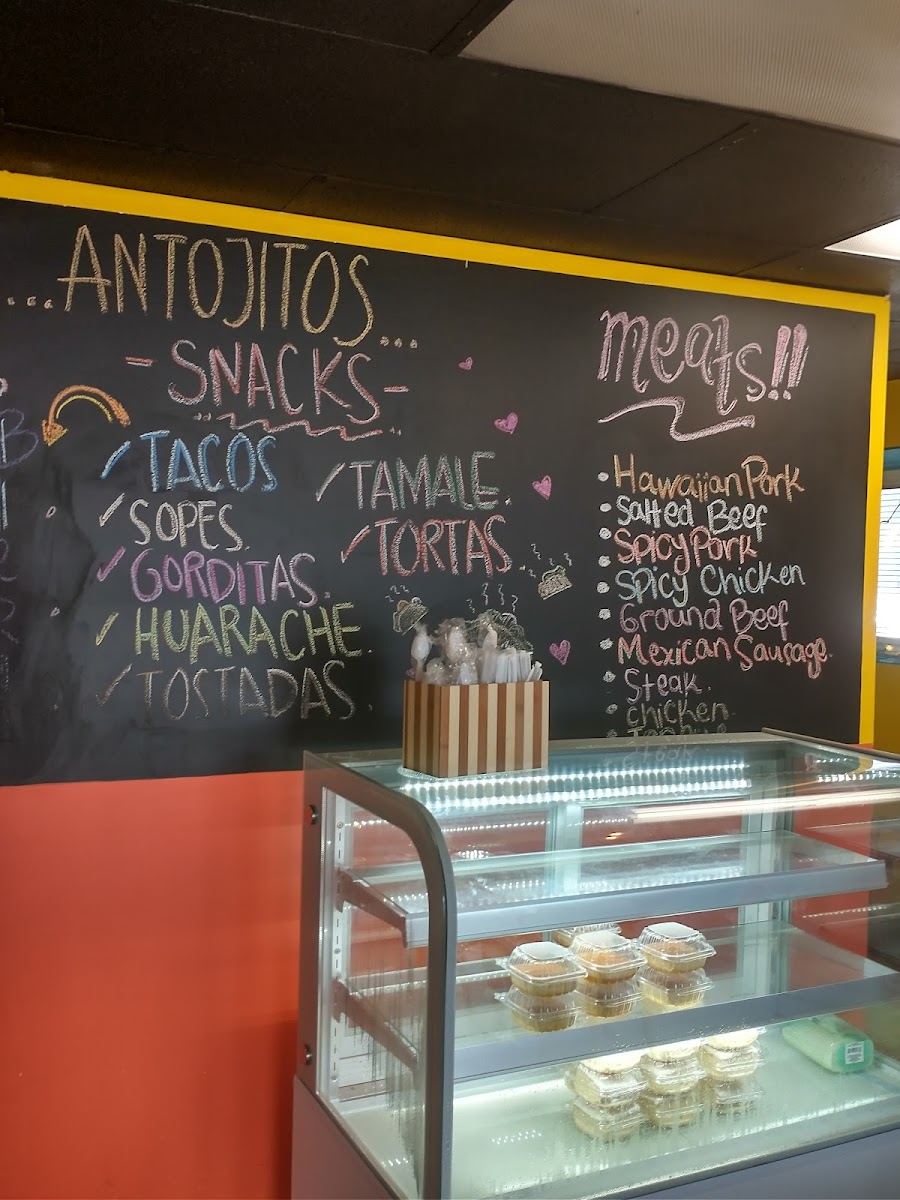 ...ANTOJITOS...
- SNACKS -
TACOS
SOPES.
GORDITAS.
HUARACHE.
TOSTADAS.
TAMALE.
TORTAS
meats!!
Hawaiian Pork
Salted Beef
Spicy Pork
Spicy Chicken
Ground Beef
Mexican Sausage.
Steak.
chicken.